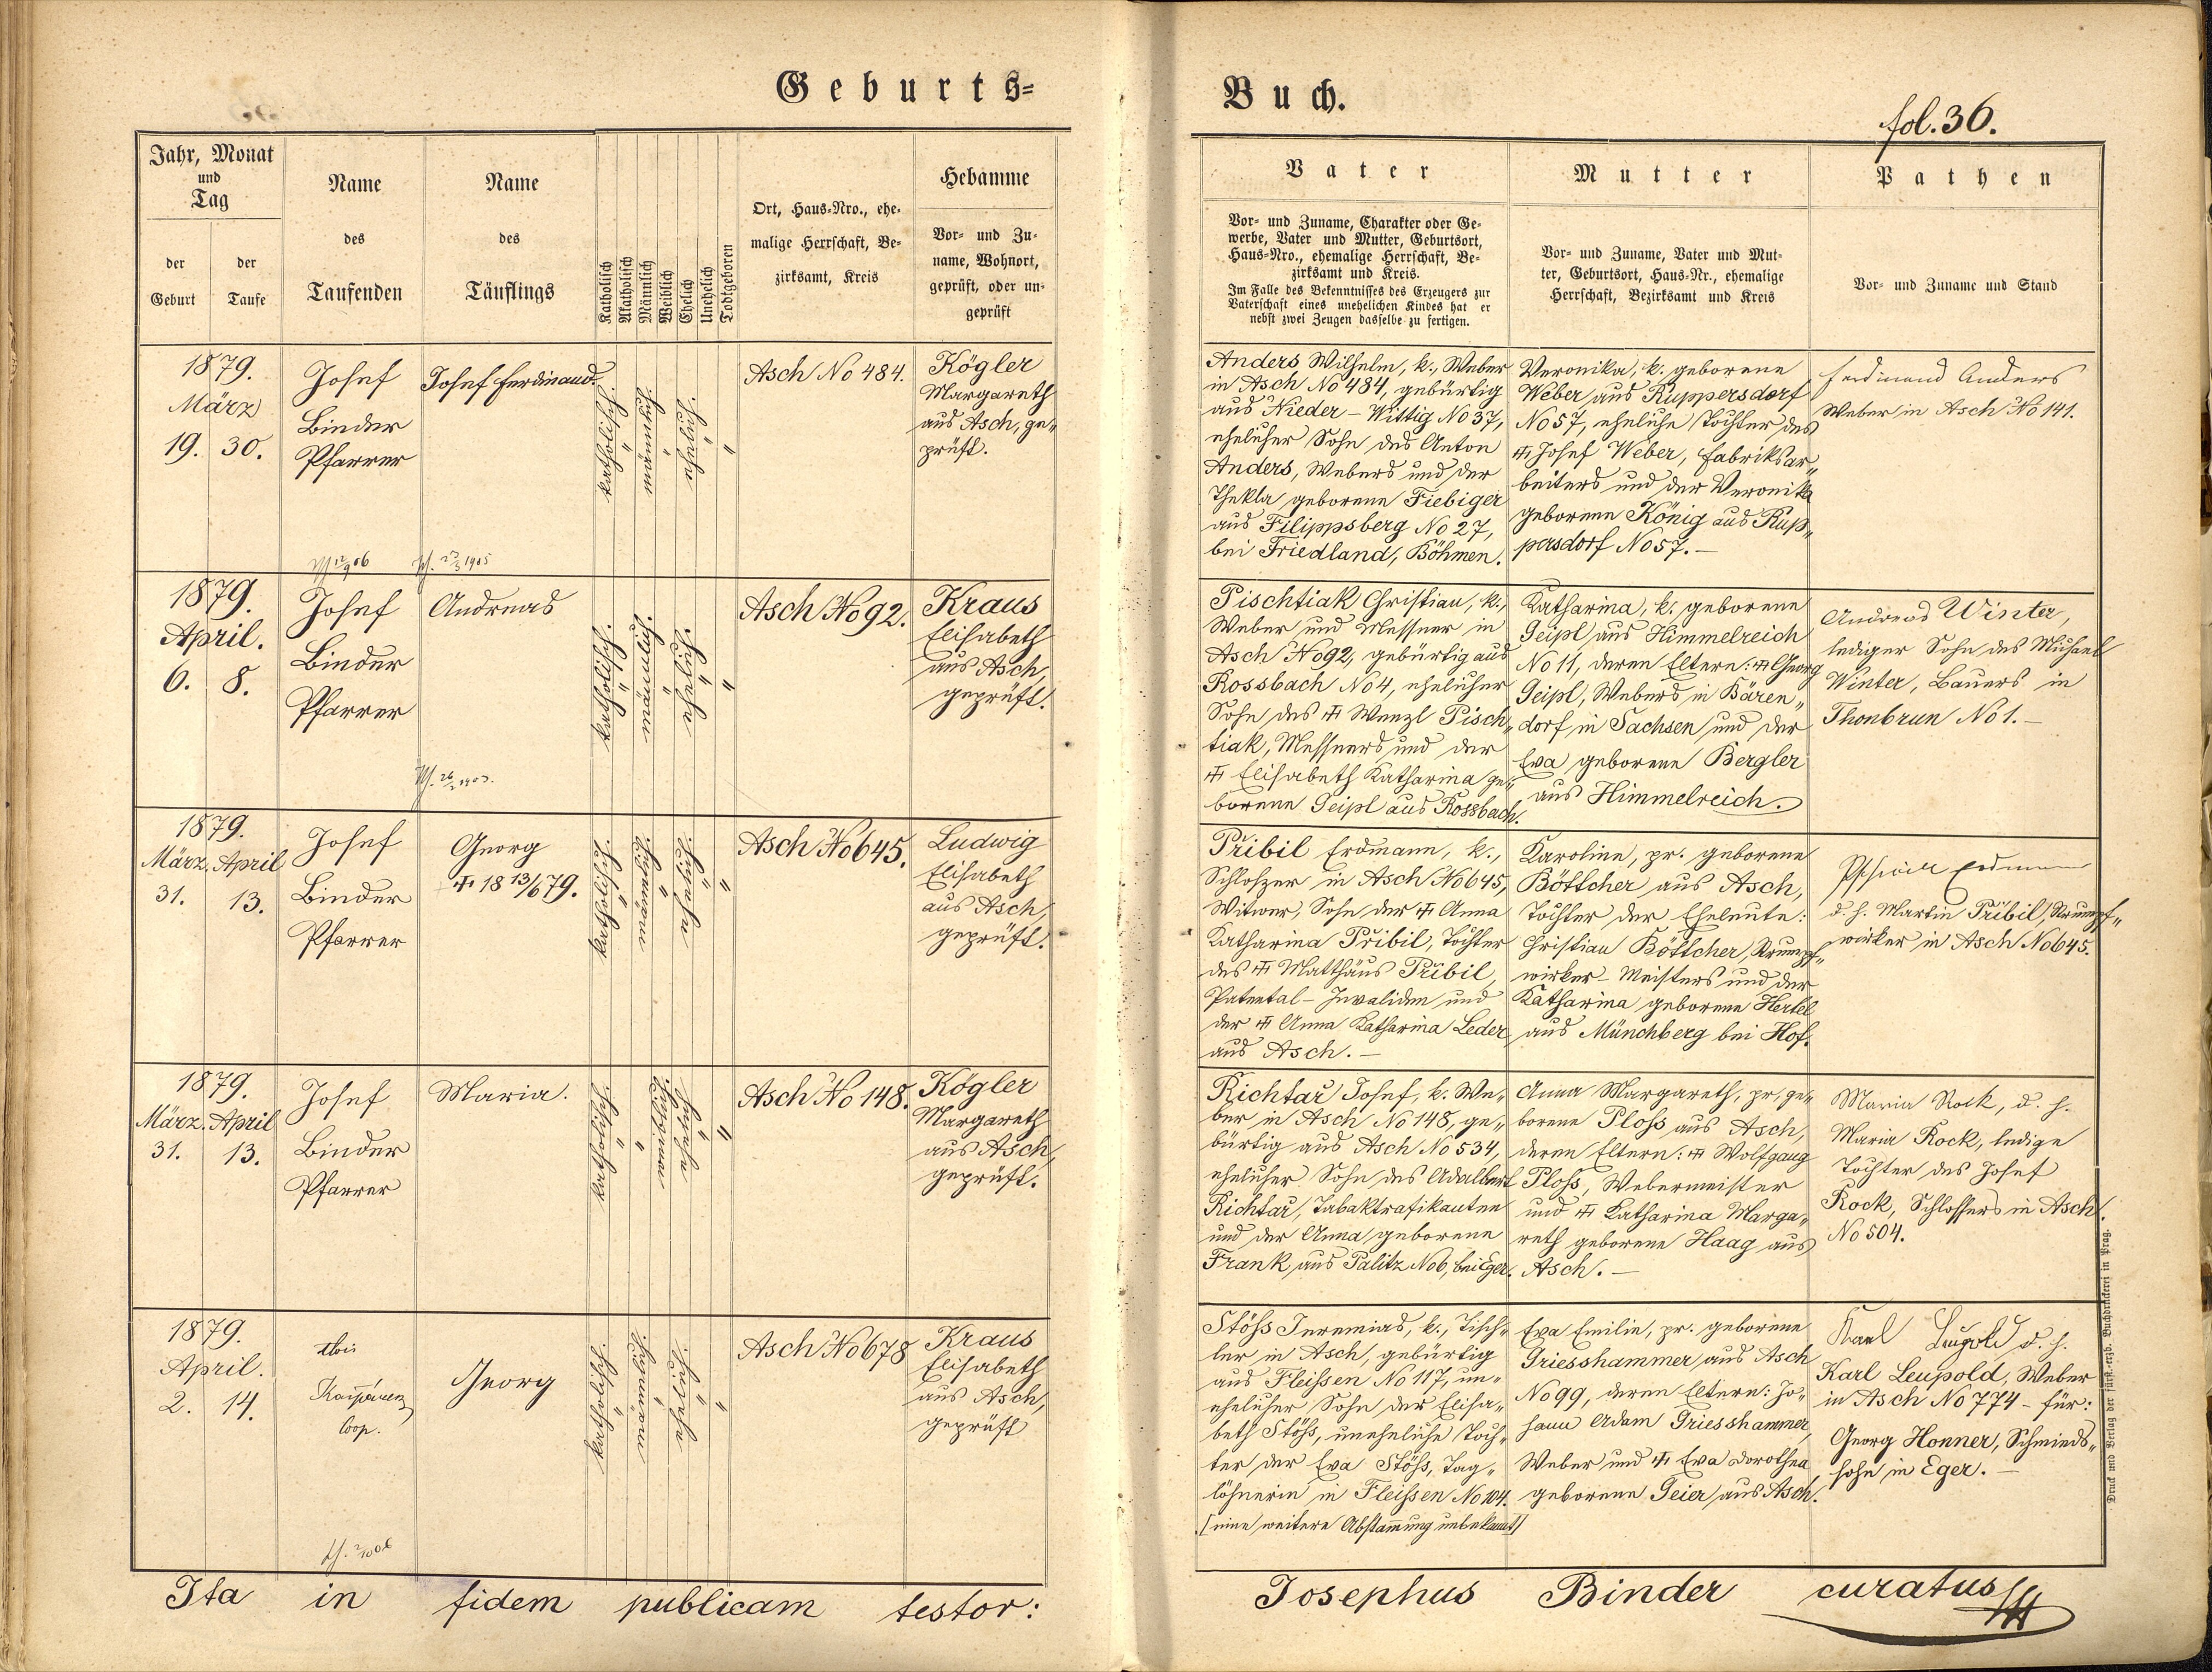 Geburts=
Jahr, Monat
und
Tag
der
Geburt
der
Taufe
Name
des
Taufenden
Name
des
Täuflings
Katholisch
Akatholisch
Männlich
Weiblich
Ehelich
Unehelich
Todtgeboren
Ort, Haus=Nro., ehe-
malige Herrschaft, Be-
zirksamt, Kreis
Hebamme
Vor= und Zu-
name, Wohnort,
geprüft, oder un-
geprüft
1879.
März
19. 30.
Josef
Binder
Pfarrer
Josef Ferdinand.
katholisch
"
männlich
ehelich
"
Asch No 484.
Kögler
Margareth
aus Asch, ge„
prüft.
1879.
April.
6. 8.
Josef
Binder
Pfarrer
Andreas
katholisch
"
männlich
"
ehelich
"
Asch No 92.
Kraus
Elisabeth
aus Asch,
geprüft.
1879.
März. April
31. 13.
Josef
Binder
Pfarrer
Georg
18 13/6 79.
katholisch
"
männlich
"
ehelich
"
Asch No 645.
Ludwig
Elisabeth
aus Asch,
geprüft.
1879.
März. April
31. 13.
Josef
Binder
Pfarrer
Maria.
katholisch
"
"
weiblich
ehelich
"
Asch No 148.
Kögler
Margareth
aus Asch,
geprüft.
1879.
April.
2. 14.
Coop.
Georg
katholisch
"
männlich
"
ehelich
"
Asch No 678
Kraus
Elisabeth
aus Asch,
geprüft
Ita in fidem publicam testor:
Buch.
fol. 36.
Vater
Vor= und Zuname, Charakter oder Ge-
werbe, Vater und Mutter, Geburtsort,
Haus=Nro., ehemalige Herrschaft, Be-
zirksamt und Kreis.
Im Falle des Bekenntnisses des Erzeugers zur
Vaterschaft eines unehelichen Kindes hat er
nebst zwei Zeugen dasselbe zu fertigen.
Mutter
Vor= und Zuname, Vater und Mut-
ter, Geburtsort, Haus=Nr., ehemalige
Herrschaft, Bezirksamt und Kreis
Pathen
Vor= und Zuname und Stand
Anders Wilhelm, k., Weber
in Asch No 484, gebürtig
aus Nieder-Wittig No 37,
ehelicher Sohn des Anton
Anders, Webers und der
Thekla geborene Fiebiger
aus Filippsberg No 27,
bei Friedland, Böhmen.
Veronika, k. geborene
Weber aus Ruppersdorf
No 57, eheliche Tochter des
Josef Weber, Fabriksar„
beiters und der Veronika
geborene König aus Rup„
persdorf No 57.-
Ferdinand Anders
Weber in Asch No 141.
Pischtiak Christian, k.,
Weber und Messner in
Asch No 92, gebürtig aus
Rossbach No 4, ehelicher
Sohn des Wenzl Pisch„
tiak, Messners und der
Elisabeth Katharina ge„
borene Geipl aus Rossbach.
Katharina, k. geborene
Geipl aus Himmelreich
No 11, deren Eltern: Georg
Geipl, Webers in Bären„
dorf in Sachsen und der
Eva geborene Bergler
aus Himmelreich.
Andreas Winter,
lediger Sohn des Michael
Winter, Bauers in
Thonbrun No 1.-
Přibil Erdmann, k.,
Schlosser in Asch No 645,
Witwer, Sohn der Anna
Katharina Přibil, Tochter
des Matthäus Přibil,
Patental-Invaliden und
der Anna Katharina Leder
aus Asch.-
Karoline, pr. geborene
Böttcher aus Asch,
Tochter der Eheleute:
Christian Böttcher, Strumpf„
wirker-Meisters und der
Katharina geborene Hertel
aus Münchberg bei Hof.
d. h. Martin Přibil, Strumpf„
wirker in Asch No 645.
Richtař Josef, k. We„
ber in Asch No 148, ge„
bürtig aus Asch No 534,
ehelicher Sohn des Adalbert
Richtař, Tabaktrafikanten
und der Anna geborene
Frank, aus Palitz No 6, bei Eger.
Anna Margareth, pr. ge„
borene Ploss aus Asch,
deren Eltern: Wolfgang
Ploss, Webermeister
und Katharina Marga„
reth geborene Haag aus
Asch.-
Maria Rock, d. h.
Maria Rock, ledige
Tochter des Josef
Rock, Schlossers in Asch
No 504.
Stöss Jeremias, k., Tisch„
ler in Asch, gebürtig
aus Fleissen No 117, un„
ehelicher Sohn der Elisa„
beth Stöss, uneheliche Toch„
ter der Eva Stöss, Tag„
löhnerin in Fleissen No 104.
[eine weitere Abstammung unbekannt]
Eva Emilie, pr. geborene
Griesshammer aus Asch
No 99, deren Eltern: Jo„
hann Adam Griesshammer,
Weber und Eva Dorothea
geborene Geier aus Asch.
Karl Leupold d. h.
Karl Leupold, Weber
in Asch No 774 - für:
Georg Honner, Schmieds„
sohn in Eger.-
Josephus Binder curatus
Druck und Verlag der fürst.-erzb. Buchdruckerei in Prag.